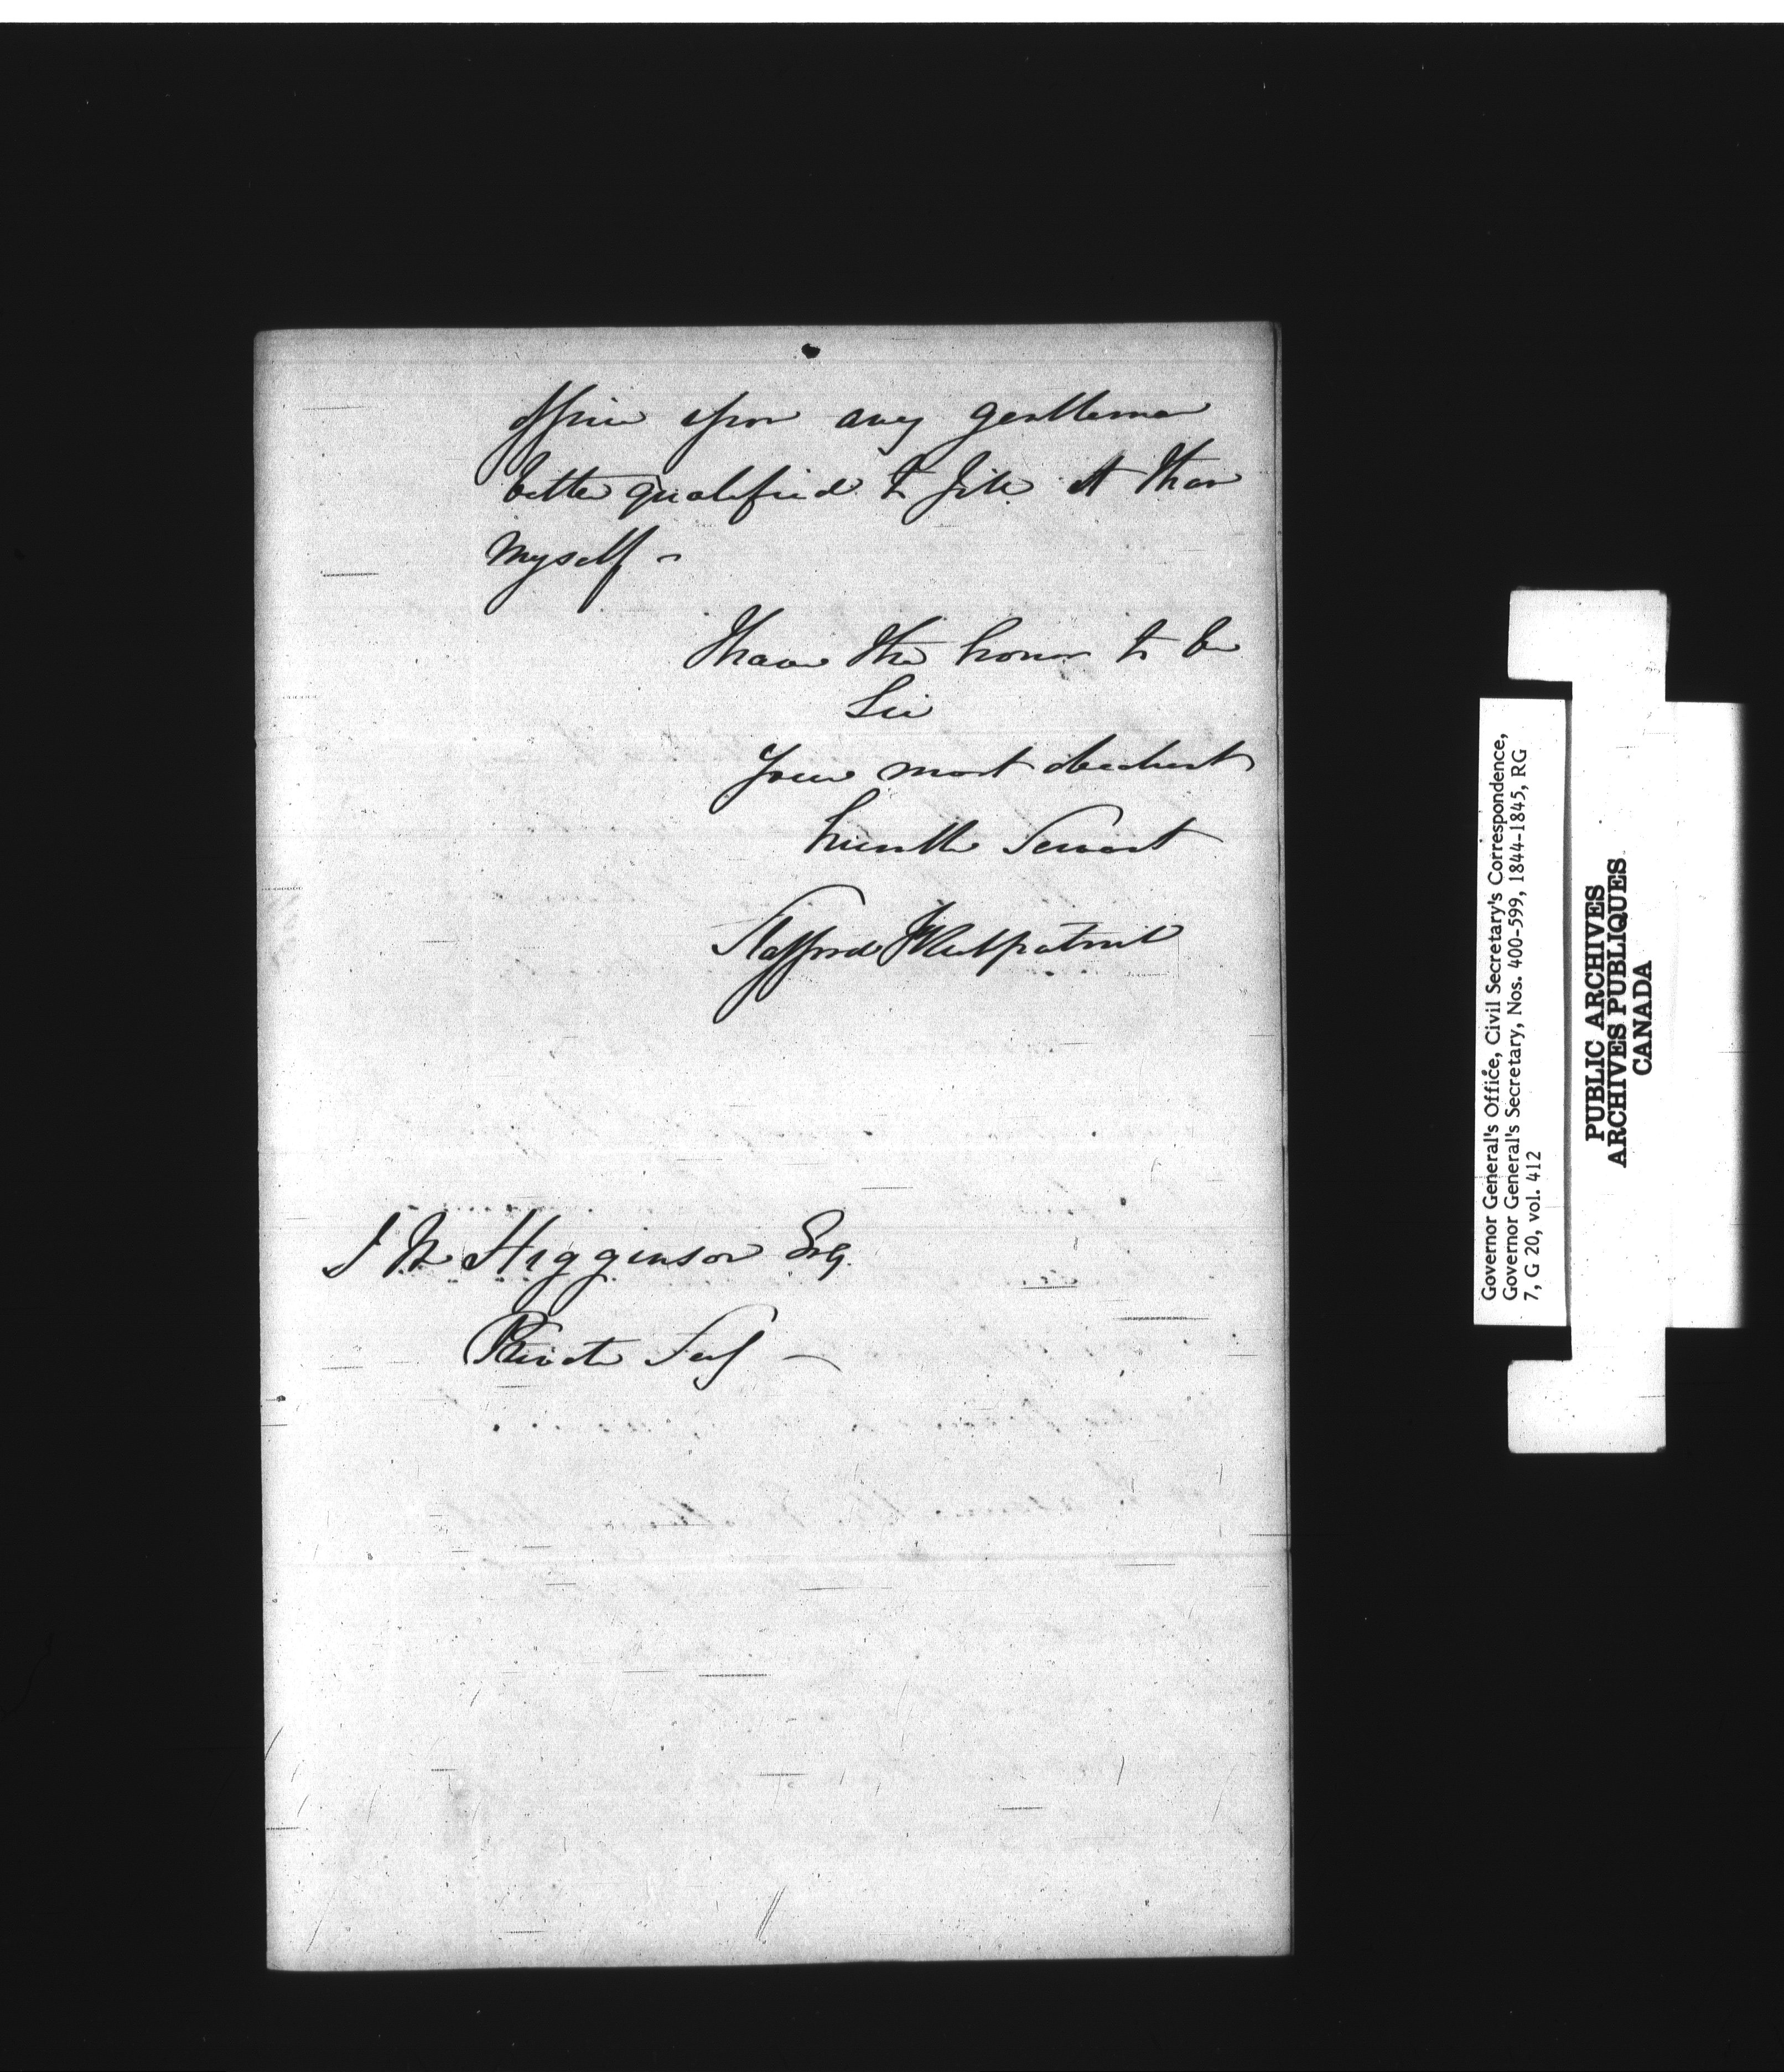 office upon any gentleman
better qualified to fill it than
myself -
I have the honor to be
Sir
Your most obedient
humble Servant
Stafford Kirkpatrick
J M Higginson Esq.
Private Secy -
Governor General's Office, Civil Secretary's Correspondence,
Governor General's Secretary, Nos. 400-599, 1844-1845, RG
7, G 20, vol. 412
PUBLIC ARCHIVES
ARCHIVES PUBLIQUES
CANADA